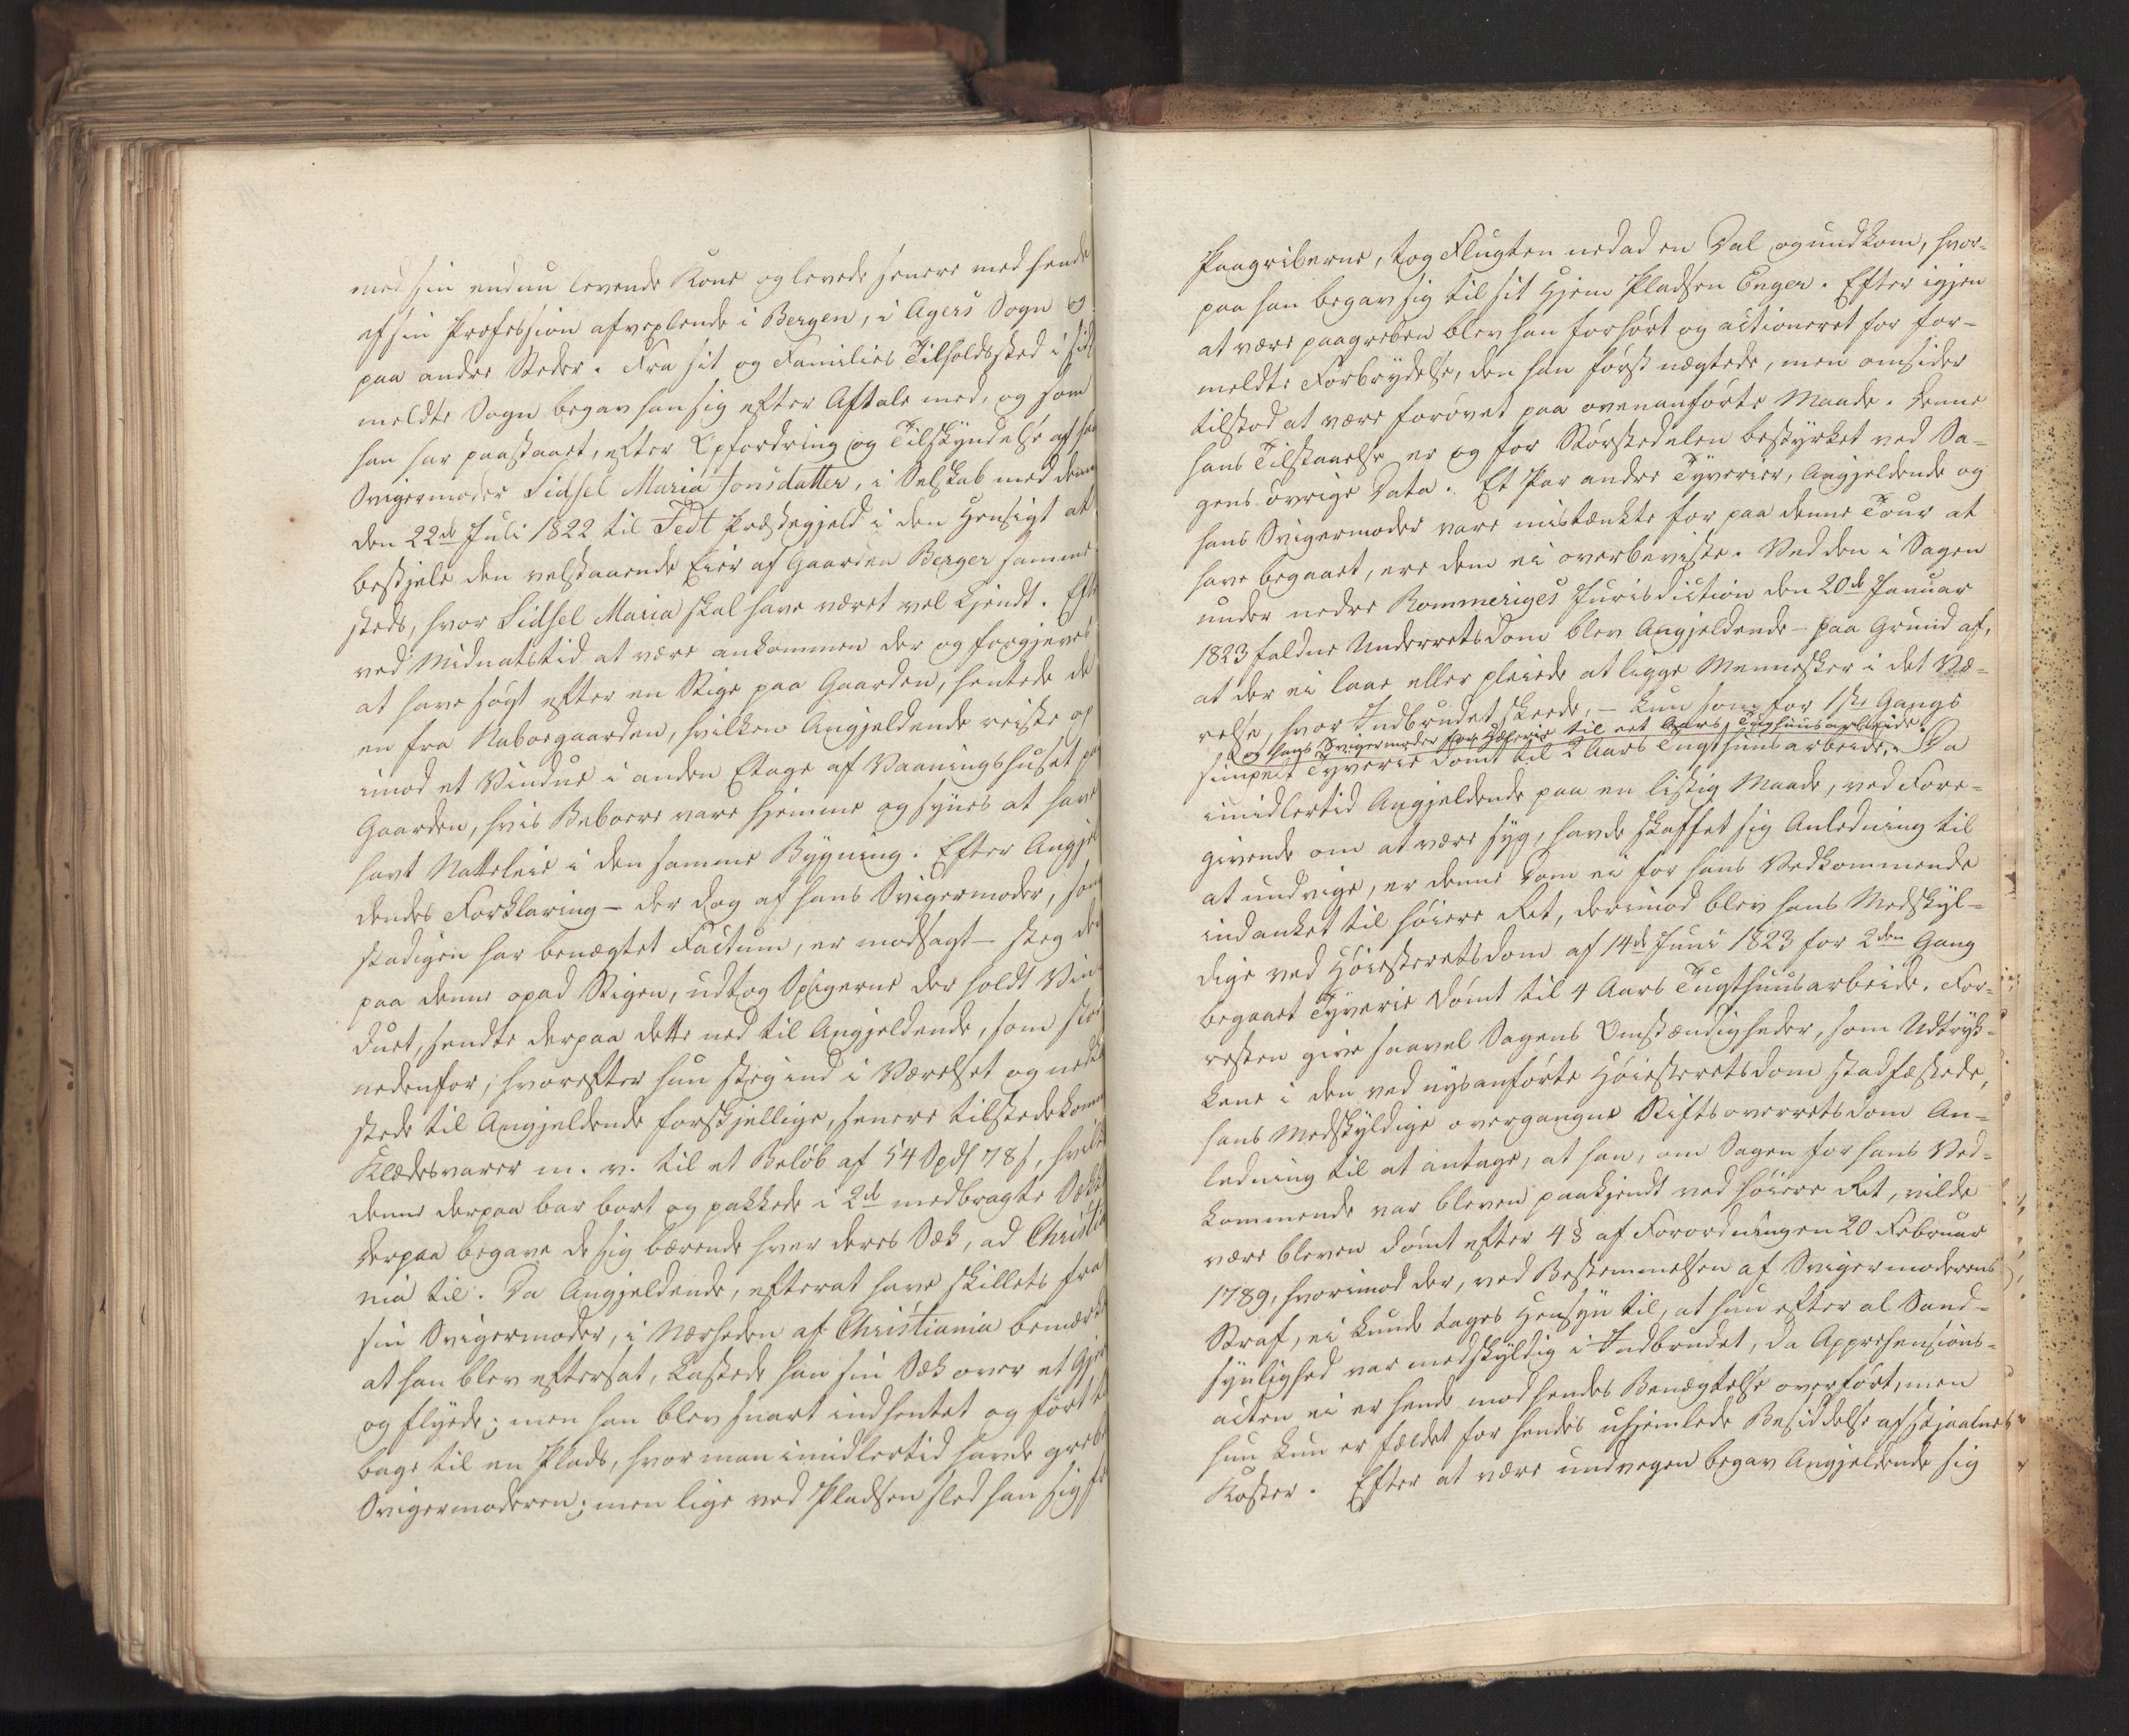 med sin endnu levende Kone og levede senere med hende
af sin Profession afvexlende i Bergen, i Agers Sogn og
paa andre Steder. Fra sit og Families Tilholdssted i sidst
meldte Sogn begav han sig efter Aftale med, og som
han har paastaaet, efter Opfordring og Tilskyndelse af sin
Svigermoder Sidsel Maria Jonsdatter, i Selskab med denne
den 22de Juli 1822 til Fedt Præstegjeld i den Hensigt at
bestjele den velstaaende Eier af Gaarden Berger samme
steds, hvor Sidsel Maria skal have været vel kjendt. Efter
ved Midnatstid at være ankommen der og forgjeves
at have søgt efter en Stige paa Gaarden, hentede de
en fra Naboegaarden, hvilken Angjeldende reiste op
imod et Vindue i anden Etage af Vaaningshuset paa
Gaarden, hvis Beboere vare hjemme og synes at have
havt Natteleie i den samme Bygning. Efter Angjel
dendes Forklaring – der dog af hans Svigermoder, som
stadigen har benægtet Factum, er modsagt – steg den
paa denne opad Stigen, udtog Spigerne der holdt Vin
duet, sendte derpaa dette ned til Angjeldende, som stod
nedenfor; hvorefter hun steg ind i Værelset og nedka
stede til Angjeldende forskjellige, senere tilstedekomne
Klædesvarer m. v. til et Beløb af 54 Spdl 78 s, hvilke
denne derpaa bar bort og pakkede i 2de medbragte Sække
derpaa begave de sig bærende hver deres Sæk, ad Christia
nia til. Da Angjeldende, efterat have skillets fra
sin Svigermoder, i Nærheden af Christiania bemærkede
at han blev eftersat, kastede han sin Sæk over et Gjerde
og flyede; men han blev snart indhentet og ført til
bage til en Plads, hvor man imidlertid havde greben
Svigermoderen; men lige ved Pladsen sled han sig fra
Paagriberne, tog Flugten nedad en Dal og undkom, hvor-
paa han begav sig til sit Hjem Pladsen Enger. Efter igjen
at være paagreben blev han forhørt og actioneret for for-
meldte Forbrydelse, den han først nægtede, men omsider
tilstod at være forøvet paa ovenanførte Maade. Denne
hans Tilstaaelse er og for Størstedelen bestyrket ved Sa-
gens øvrige Data. Et Par andre Tyverier, Angjeldende og
hans Svigermoder vare mistænkte for paa denne Tour at
have begaaet, ere dem ei overbeviste. Ved den i Sagen
under nedre Rommeriges Jurisdiction den 20de Januar
1823 faldne Underretsdom blev Angjeldende – paa Grund af,
at der ei laae eller pleiede at ligge Mennesker i det Væ-
relse, hvor Indbrudet skeede, – kun som for 1ste Gangs
og hans Svigermoder for Hæleri til eet Aars Tugthuusarbeide.
simpelt Tyverie dømt til 2 Aars Tugthuusarbeide. Da
imidlertid Angjeldende paa en listig Maade, ved Fore-
givende om at være syg, havde skaffet sig Anledning til
at undvige, er denne Dom ei for hans Vedkommende
indanket til høiere Ret, derimod blev hans Medskyl-
dige ved Høiesteretsdom af 14de Juni 1823 for 2den Gang
begaaet Tyverie dømt til 4 Aars Tugthuusarbeide. For-
resten give saavel Sagens Omstændigheder, som Udtryk-
kene i den ved nysanførte Høiesteretsdom stadfæstede,
hans Medskyldige overgangne Stiftsoverretsdom An-
ledning til at antage, at han, om Sagen for hans Ved-
kommende var bleven paakjendt ved høiere Ret, vilde
være bleven dømt efter 4 § af Forordningen 20 Februar
1789, hvorimod der, ved Bestemmelsen af Svigermoderens
Straf, ei kunde tages Hensyn til, at hun efter al Sand-
synlighed var medskyldig i Indbrudet, da Apprehensions-
acten ei er hende mod hendes Benægtelse overført, men
hun kun er fældet for hendes uhjemlede Besiddelse af stjaalne
Koster. Efter at være undvegen begav Angjeldende sig